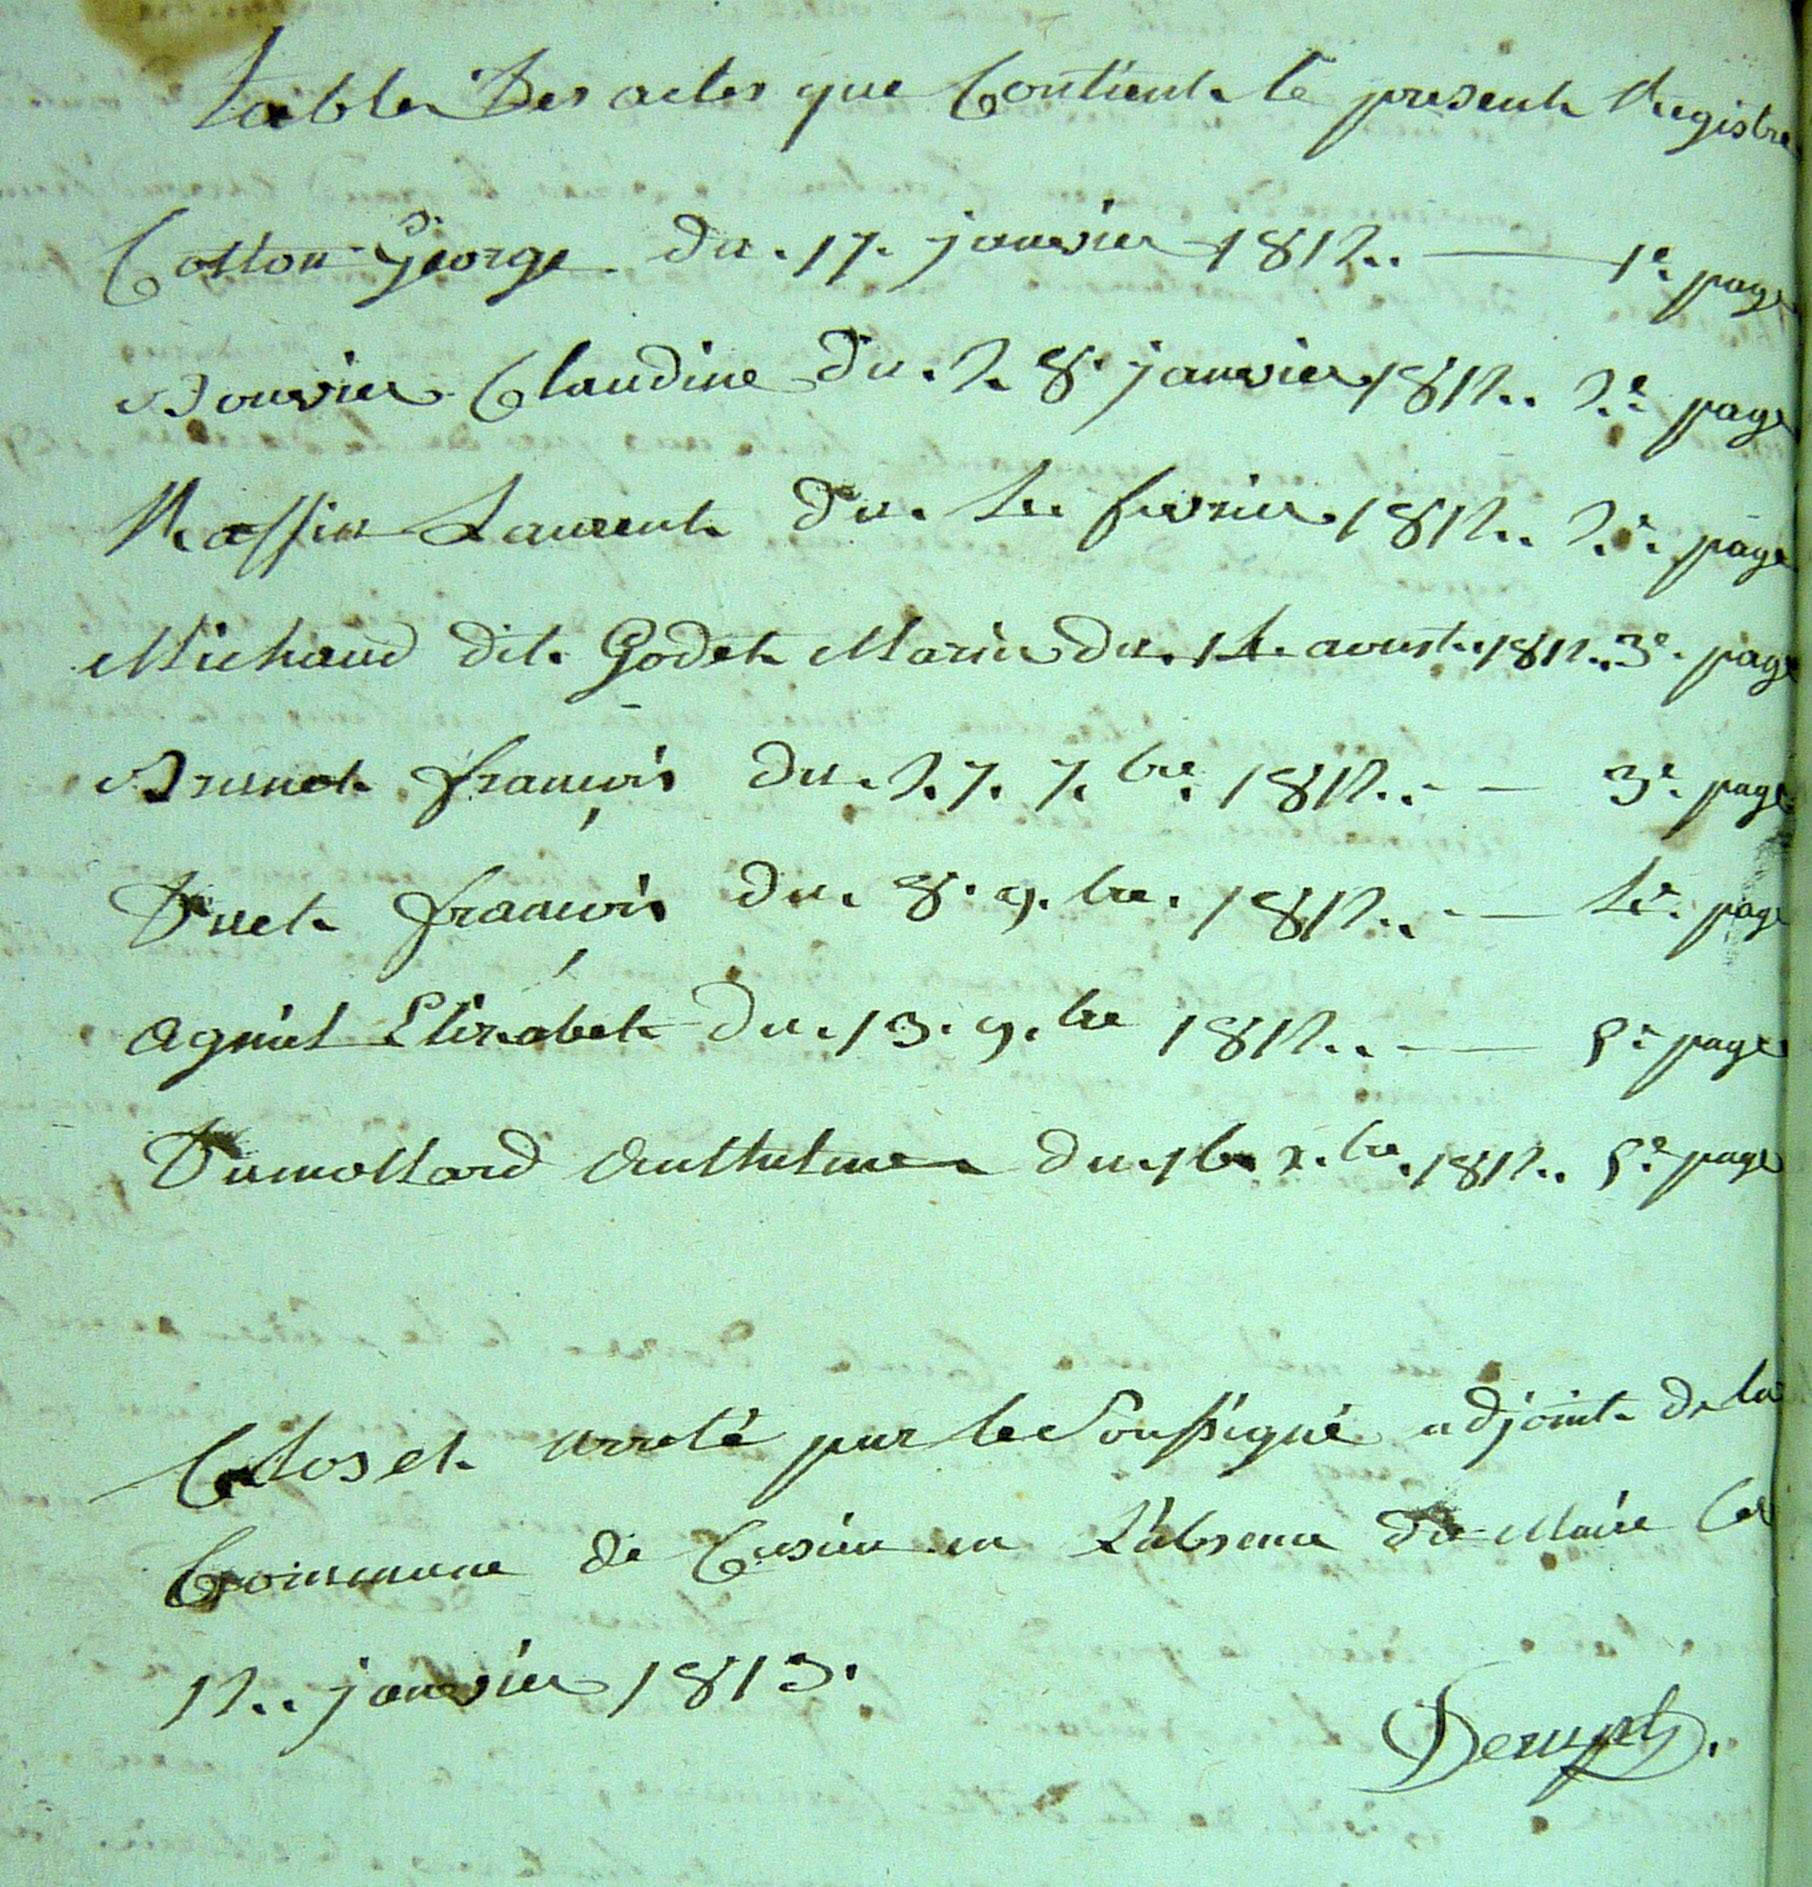 table Des actes que Contient le present Registre
Cotton George du 17 janvier 1812. — 1e. page
Bouvier Claudine du 28 janvier 1812. 2e. page
Massin Laurent du 4 fevrier 1812. 2e. page
Michaud dit Godet Marie du 14 aoust 1812. 3e. page
Brunet françois du 27 7.bre 1812. — 3e. page
Duet françois du 8 9.bre 1812. — 4e. page
agniel Elizabet du 13 9.bre 1812. — 5e. page
Dumollard Anthelme du 16 x.bre 1812. 5e. page
Clos et arreté par le Soussigné adjoint de la
Commune de Cusieu en L'absence du Maire Ce
12. janvier 1813.